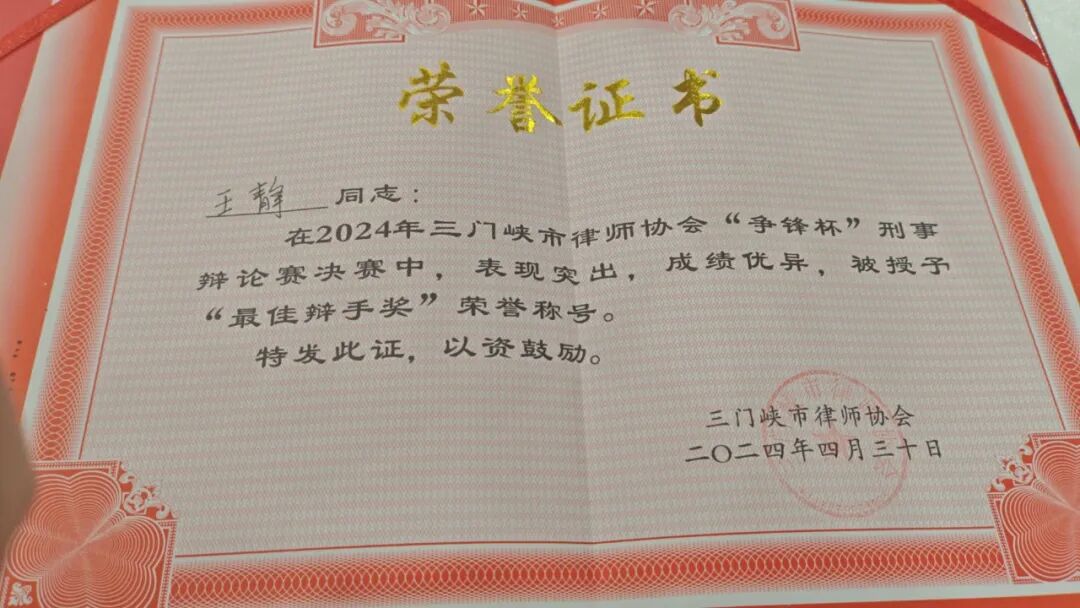 荣誉证书
王静 同志：
在2024年三门峡市律师协会“争锋杯”刑事
辩论赛决赛中，表现突出，成绩优异，被授予
“最佳辩手奖”荣誉称号。
特发此证，以资鼓励。
三门峡市律师协会
二〇二四年四月三十日